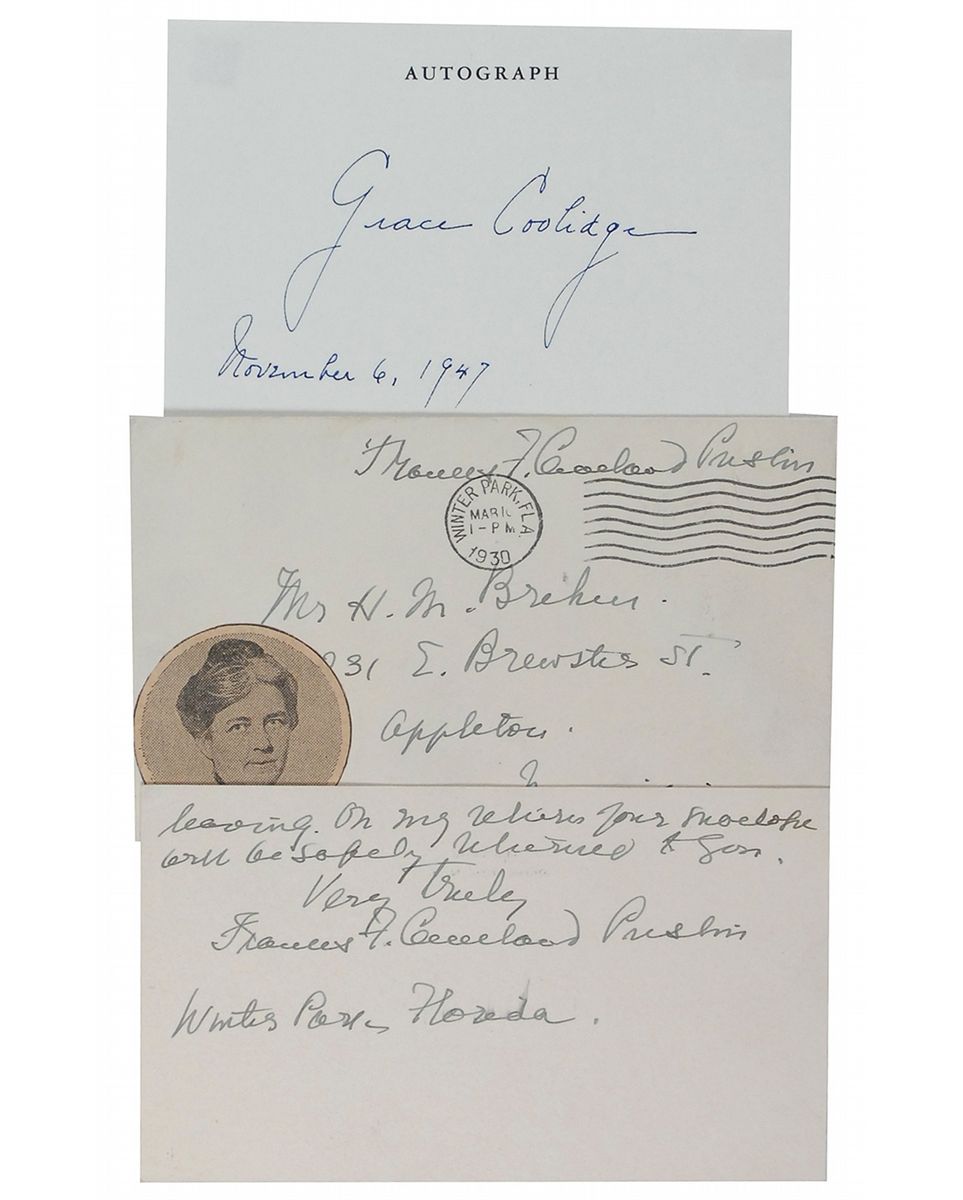 AUTOGRAPH
Grace Coolidge
November 6, 1947
Frances F. Cleveland Preston
WINTER PARK, FLA.
MAR 10
1-PM
1930
Mr H. M. Brehm.
231 E. Brewster St.
Appleton.
leaving. On my return your envelope
will be safely returned to you.
Very truly
Frances F. Cleveland Preston
Winter Park, Florida.